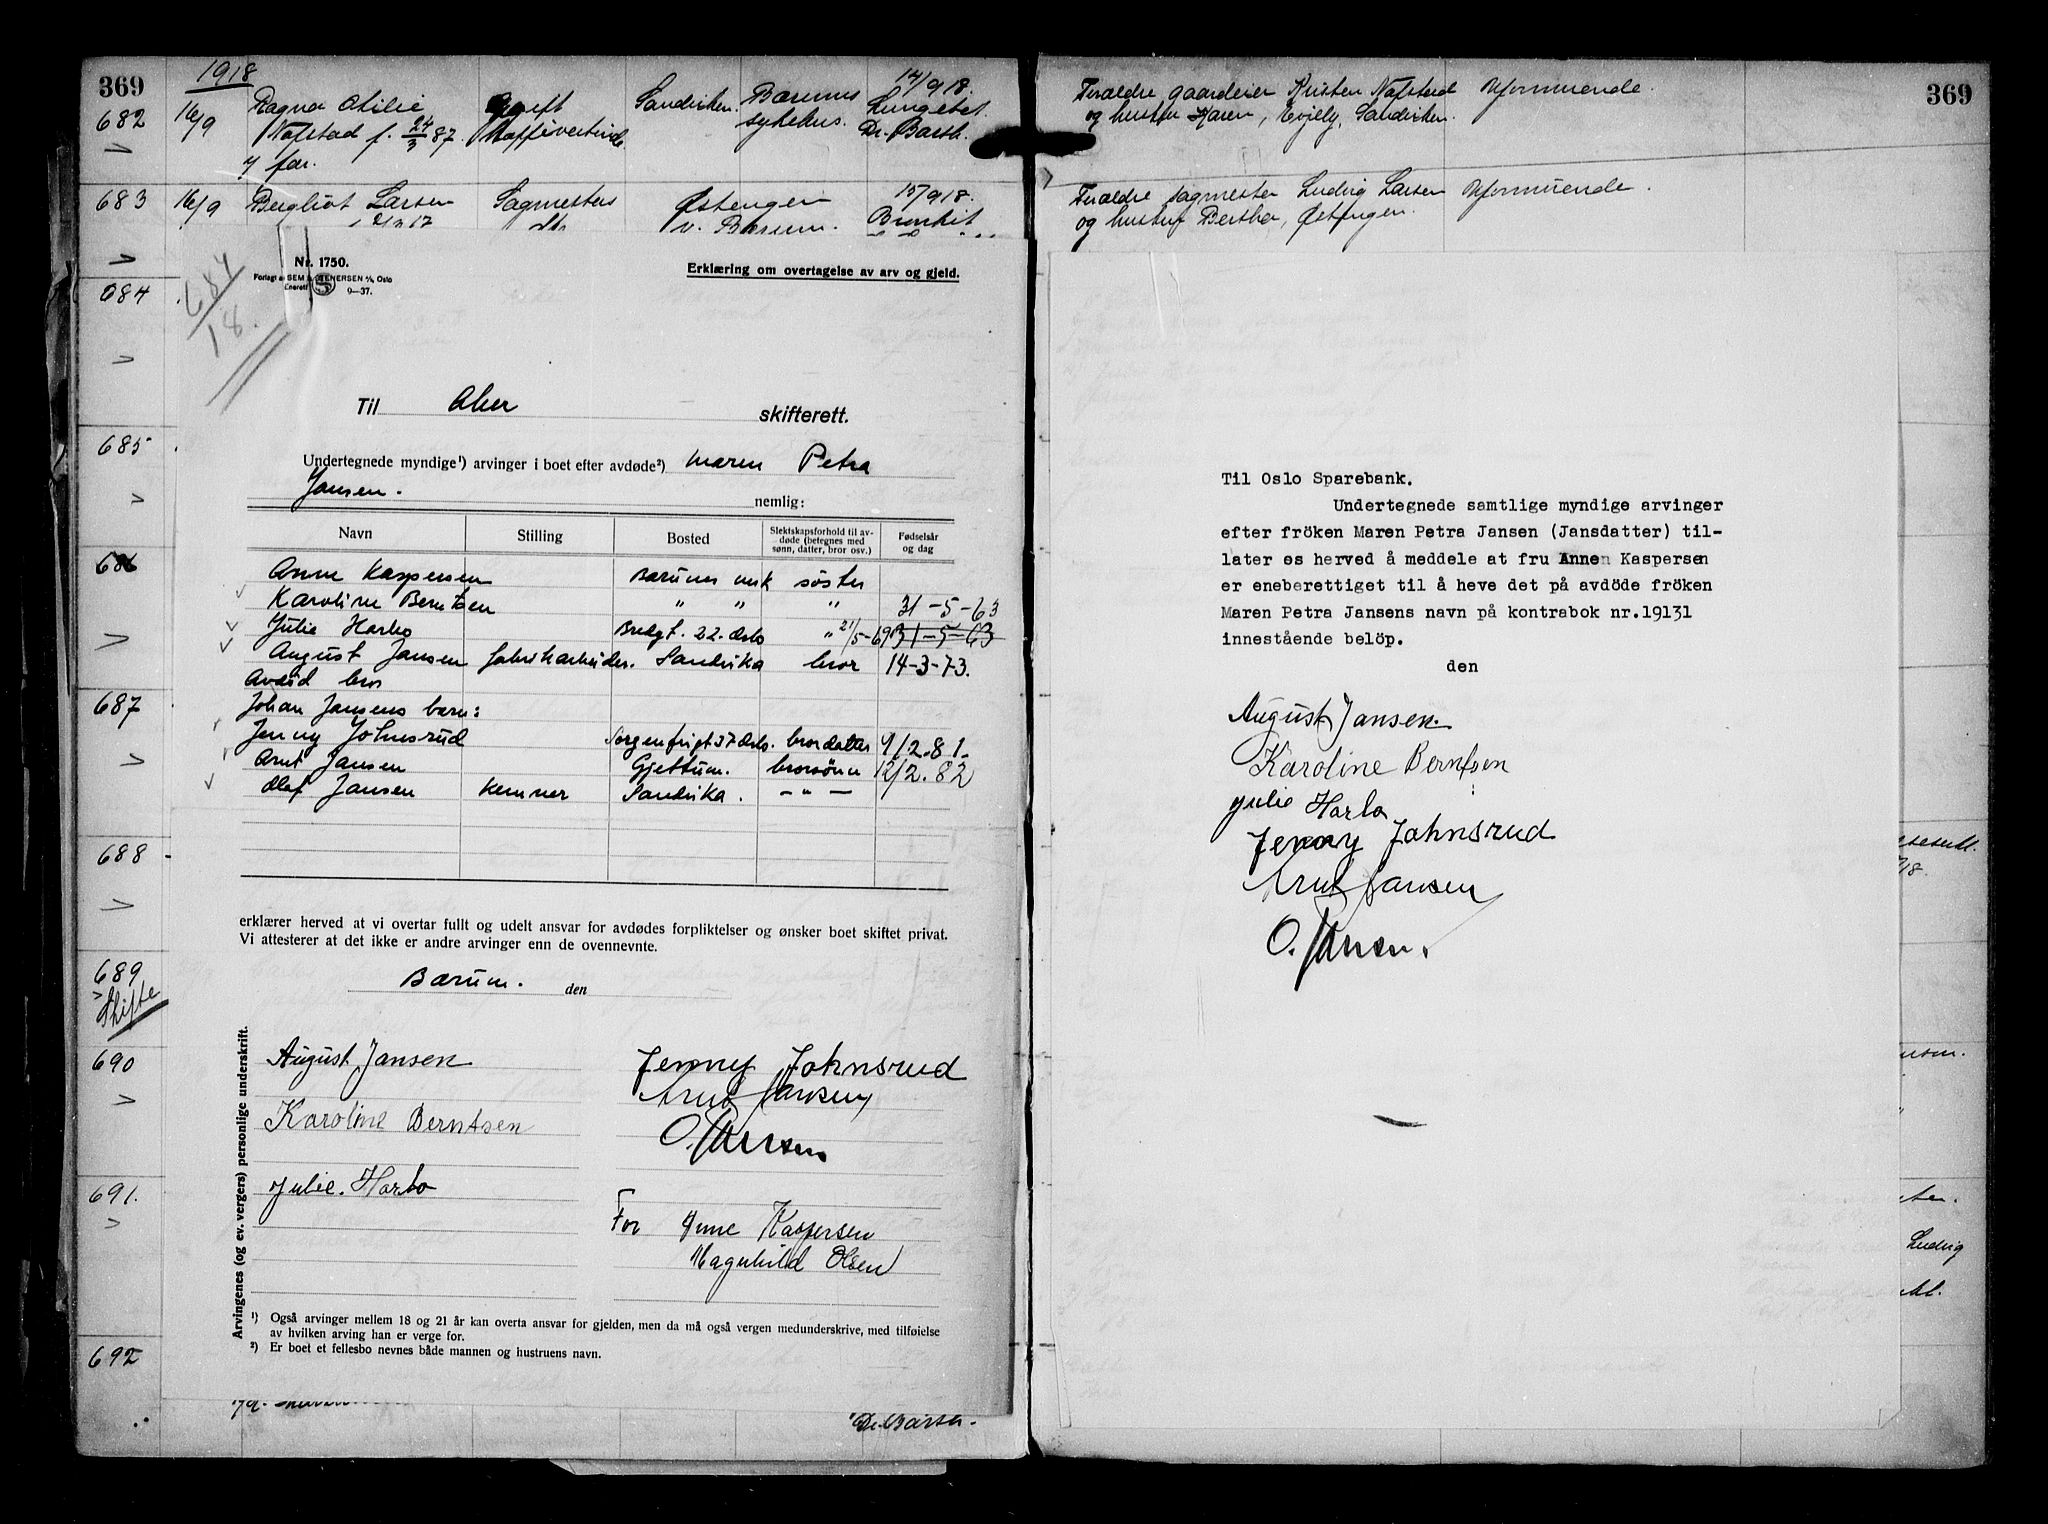 369
1918
682 16/9 Ragna Otilie ugift Sandviken. Bærums 14/9 18.
Nafstad f. 24/3 87 Kaffivertinde sykehus. Lungebet.
y far. Dr. Barth.
683 16/9 Bergliot Larsen Sagmesters Østengen 15/9 18.
v. Bærum. Bronkit
684
685
686
687
688
689
Skifte
690
691.
692
684
18.
Nr. 1750.
Forlagt SEM & STENERSEN A/S, Oslo
Enerett 9—37.
S
Erklæring om overtagelse av arv og gjeld.
Til Aker skifterett.
Undertegnede myndige¹) arvinger i boet efter avdøde²) Maren Petra
Jansen. nemlig:
Navn Stilling Bosted Slektskapsforhold til avdøde (betegnes med sønn, datter, bror osv.) Fødselsår og dag
Anne Kaspersen Bærums verk søster
Karoline Berntsen " " " 31-5-63
Julie Harbo Bredgt. 22. Oslo " 21/5-69 31-5-63
August Jansen fabrikarbeider. Sandvika bror 14-3-73.
Avdød bror
Johan Jansens barn:
Jenny Johnsrud Sorgenfrigt 37 Oslo. brordatter 9/2.81.
Arnt Jansen Gjettum. brorsønn 12/2.82
Olaf Jansen kemner Sandvika. — " —
erklærer herved at vi overtar fullt og udelt ansvar for avdødes forpliktelser og ønsker boet skiftet privat.
Vi attesterer at det ikke er andre arvinger enn de ovennevnte.
Bærum. den
Arvingenes (og ev. vergers) personlige underskrift.
August Jansen
Karoline Berntsen
Julie. Harbo
Jenny Johnsrud
Arnt Jansen
O. Jansen
For Anne Kaspersen
Magnhild Olsen
¹) Også arvinger mellem 18 og 21 år kan overta ansvar for gjelden, men da må også vergen medunderskrive, med tilføielse
av hvilken arving han er verge for.
²) Er boet et fellesbo nevnes både mannen og hustruens navn.
Dr. Barth.
369
Forældre gaardeier Kristen Nafstad Uformuende.
og hustru Karen, Evjely, Sandviken.
Forældre sagmester Ludvig Larsen Uformuende.
og hustru Bertha, Østengen.
Til Oslo Sparebank.
Undertegnede samtlige myndige arvinger
efter fröken Maren Petra Jansen (Jansdatter) til-
later os herved å meddele at fru Annen Kaspersen
er eneberettiget til å heve det på avdöde fröken
Maren Petra Jansens navn på kontrabok nr.19131
innestående belöp.
den
August Jansen.
Karoline Berntsen
Julie Harbo
Jenny Johnsrud
Arnt Jansen
O. Jansen.
Ludvig